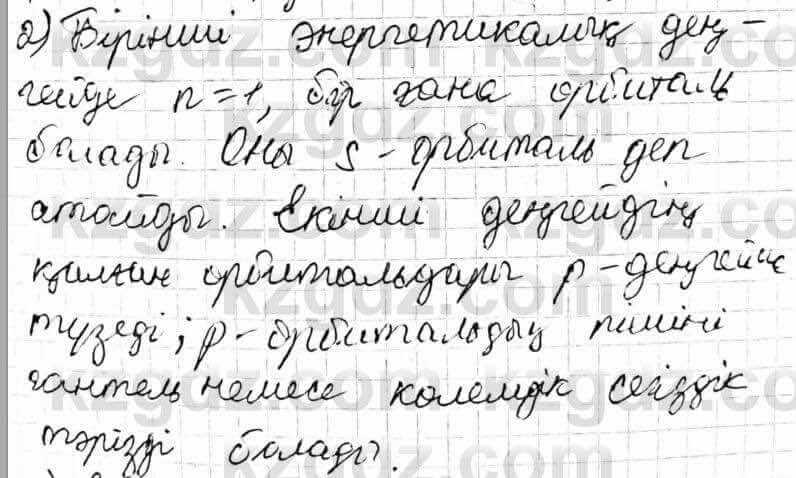 2) Бірінші энергетикалық дең-
гейде n=1, бір ғана орбиталь
болады. Оны s-орбиталь деп
атайды. Екінші деңгейдің
қалған орбитальдары р-деңгейше
түзеді; р-орбитальдың пішіні
гантель немесе көлемдік сегіздік
тәрізді болады.
kzgdz.com